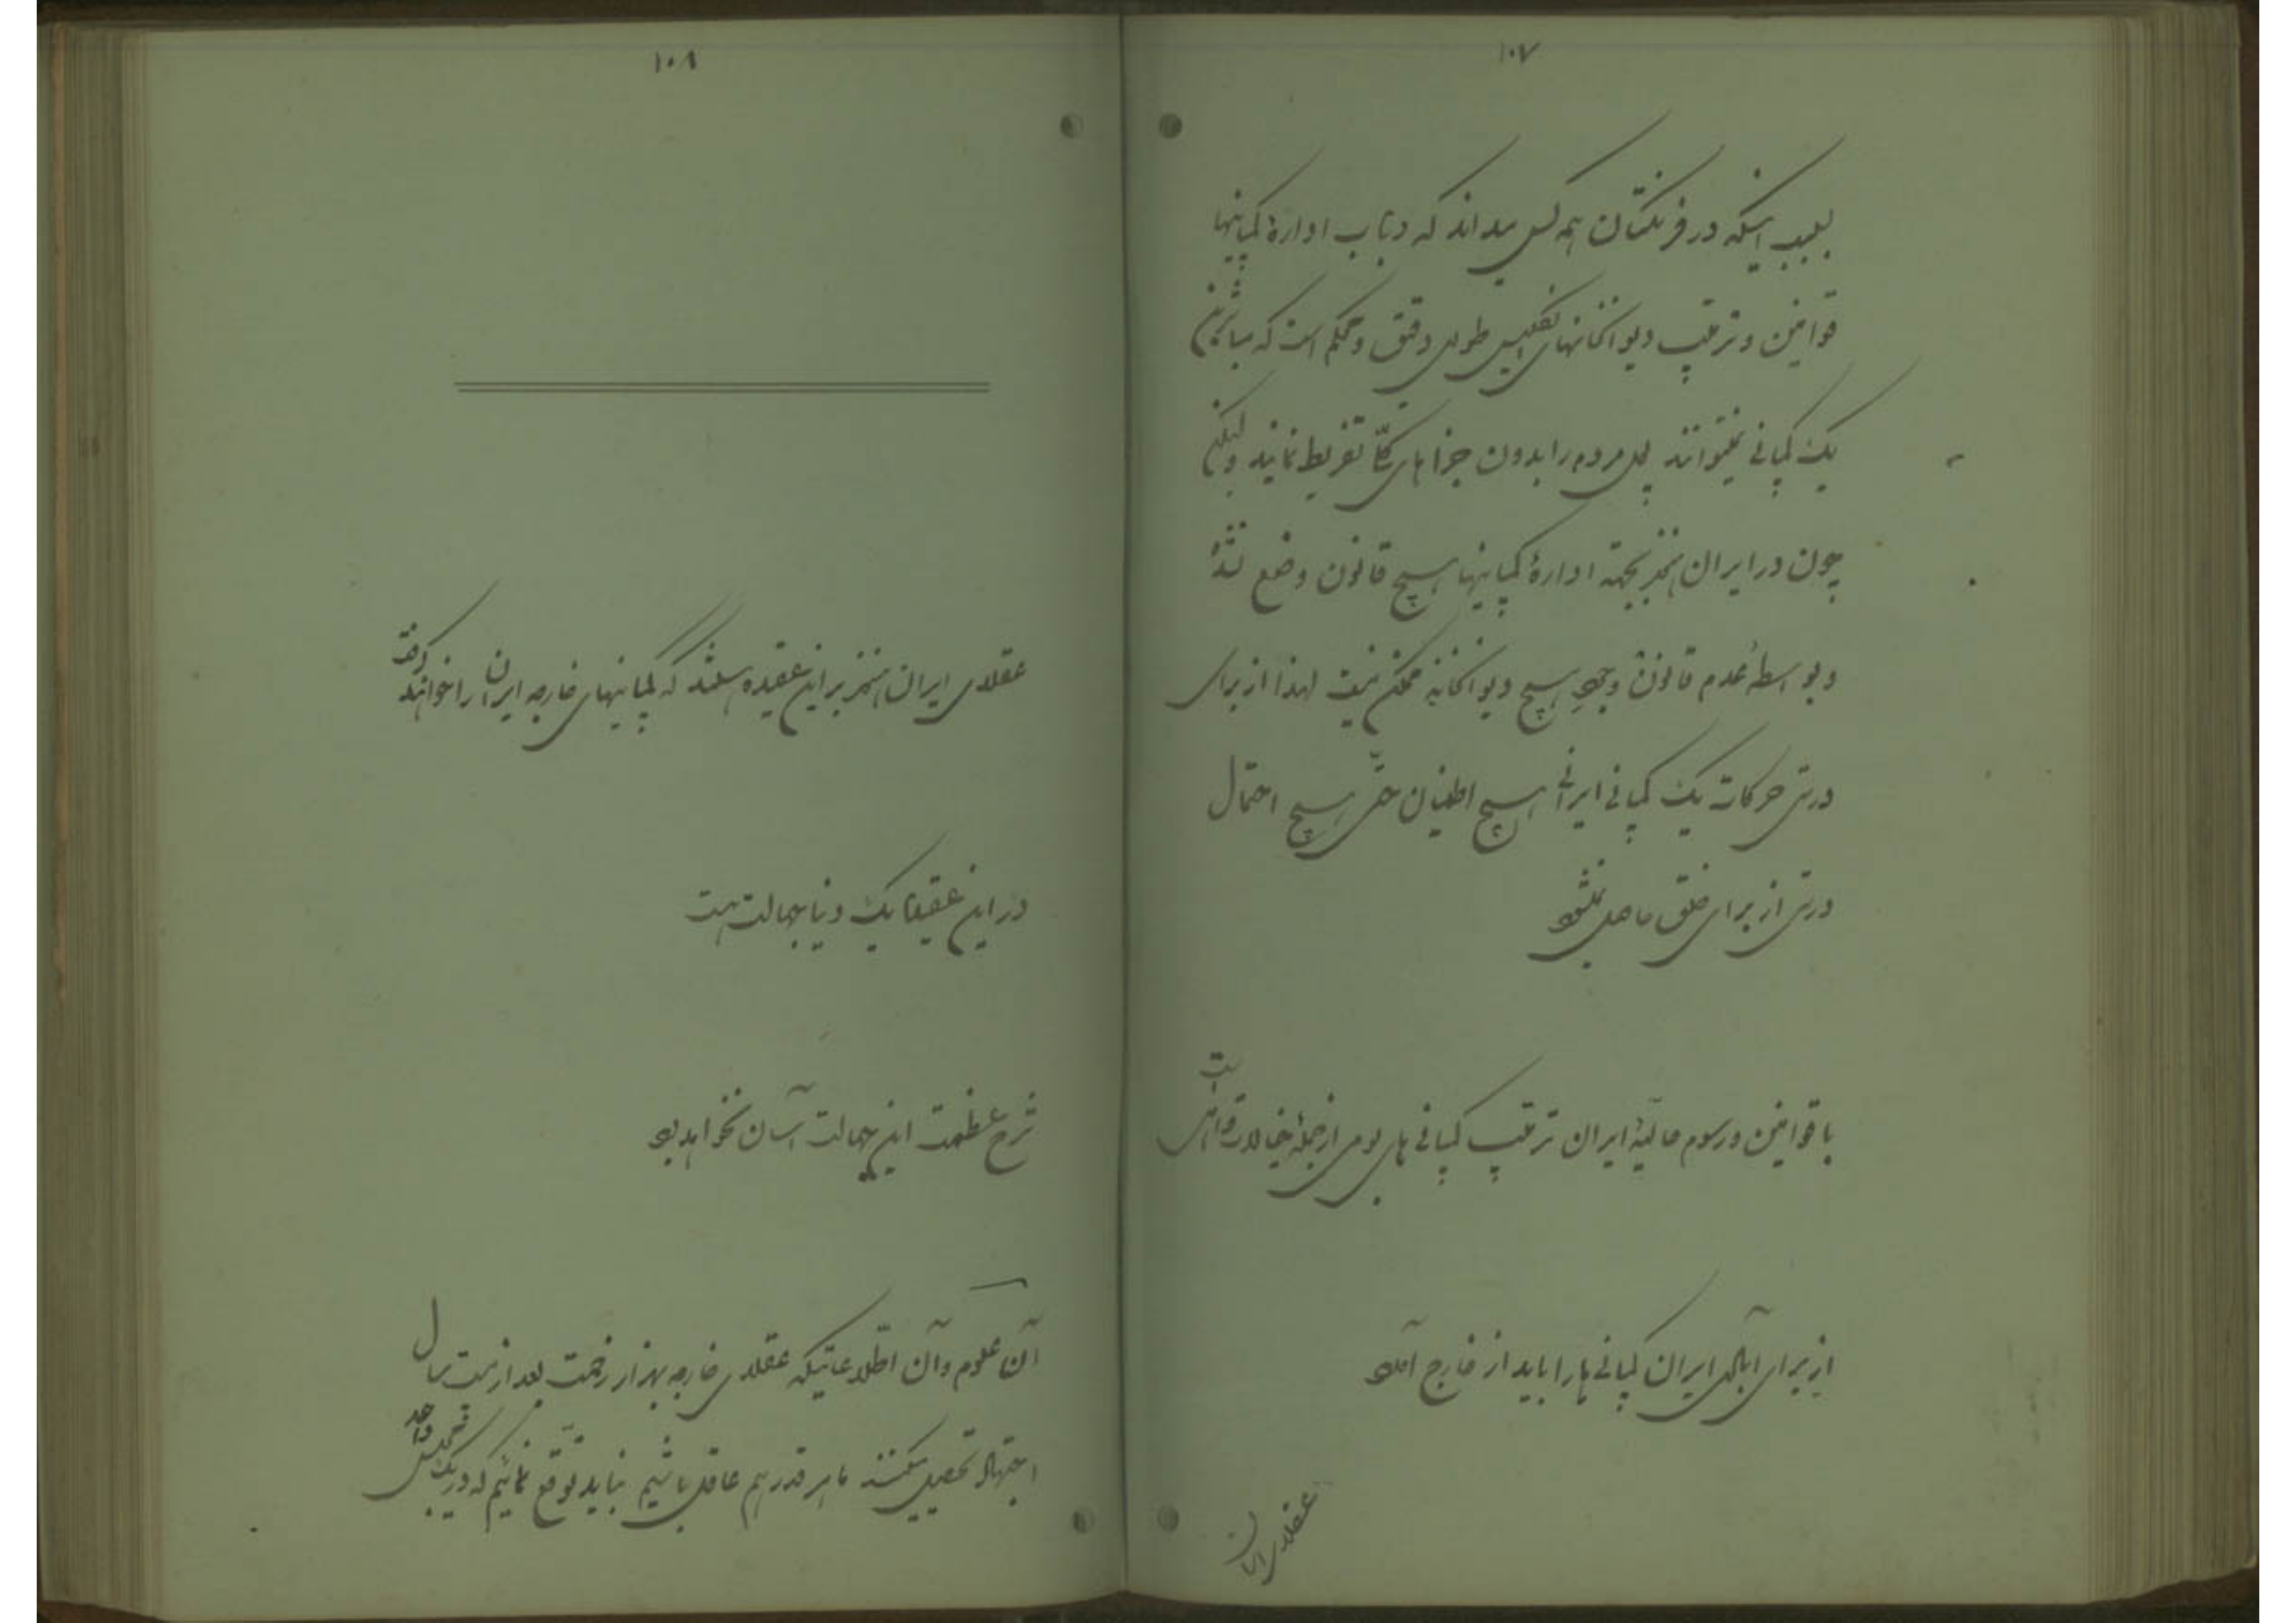 ۱۰۷
بسبب اینکه در فرنگستان همه کس میداند که در باب ادارهٔ کمپانیها
قوانین و ترتیب دیوانخانهای انگلیس طوری دقیق و محکم است که مباشرین
یک کمپانی نمیتوانند پول مردم را بدون جزاهای کلّی تفریط نمایند ولیکن
چون در ایران هنوز بجهة ادارهٔ کمپانیها هیچ قانون وضع نشده
و بواسطهٔ عدم قانون وجود هیچ دیوانخانه ممکن نیست لهذا از برای
درستی حرکات یک کمپانی ایرانی هیچ اطمینان حتّی هیچ احتمال
درستی از برای خلق حاصل نمیشود
با قوانین و رسوم حالیهٔ ایران ترتیب کمپانی های بومی از جملهٔ خیالات واهی است
از برای آبادی ایران کمپانی ها را باید از خارج آورد
عقلای ایران
۱۰۸
عقلای ایران هنوز بر این عقیده هستند که کمپانیهای خارجه ایران را خواهند گرفت
در این عقیده یک دنیا جهالت هست
شرح عظمت این جهالت آسان نخواهد بود
آن علوم و آن اطّلاعاتیکه عقلای خارجه بهزار زحمت بعد از بیست سال
اجتهاد تحصیل میکنند ما هر قدر هم عاقل باشیم نباید توقّع نمائیم که در یک مجلس